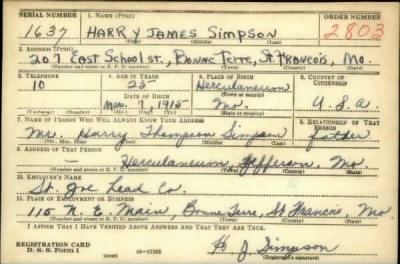 SERIAL NUMBER 1. NAME (Print) ORDER NUMBER
1637 HARRY JAMES SIMPSON 2803
(First) (Middle) (Last)
2. ADDRESS (Print)
207 East School st., Bonne Terre, St. Francois, Mo.
(Number and street or R. F. D. number) (Town) (County) (State)
3. TELEPHONE 4. AGE IN YEARS 5. PLACE OF BIRTH 6. COUNTRY OF CITIZENSHIP
10 25 Herculaneum
DATE OF BIRTH (Town or county)
Mar. 7, 1915 Mo. U.S.A.
(Exchange) (Number) (Mo.) (Day) (Yr.) (State or country)
7. NAME OF PERSON WHO WILL ALWAYS KNOW YOUR ADDRESS 8. RELATIONSHIP OF THAT PERSON
Mr. Harry Thompson Simpson father
(Mr., Mrs., Miss) (First) (Middle) (Last)
9. ADDRESS OF THAT PERSON
Herculaneum, Jefferson, Mo.
(Number and street or R. F. D. number) (Town) (County) (State)
10. EMPLOYER'S NAME
St. Joe Lead Co.
11. PLACE OF EMPLOYMENT OR BUSINESS
115 N. E. Main, Bonne Terre, St Francis, Mo
(Number and street or R. F. D. number) (Town) (County) (State)
I AFFIRM THAT I HAVE VERIFIED ABOVE ANSWERS AND THAT THEY ARE TRUE.
REGISTRATION CARD
D. S. S. Form 1 16—17105 H J. Simpson
(Registrant's signature)